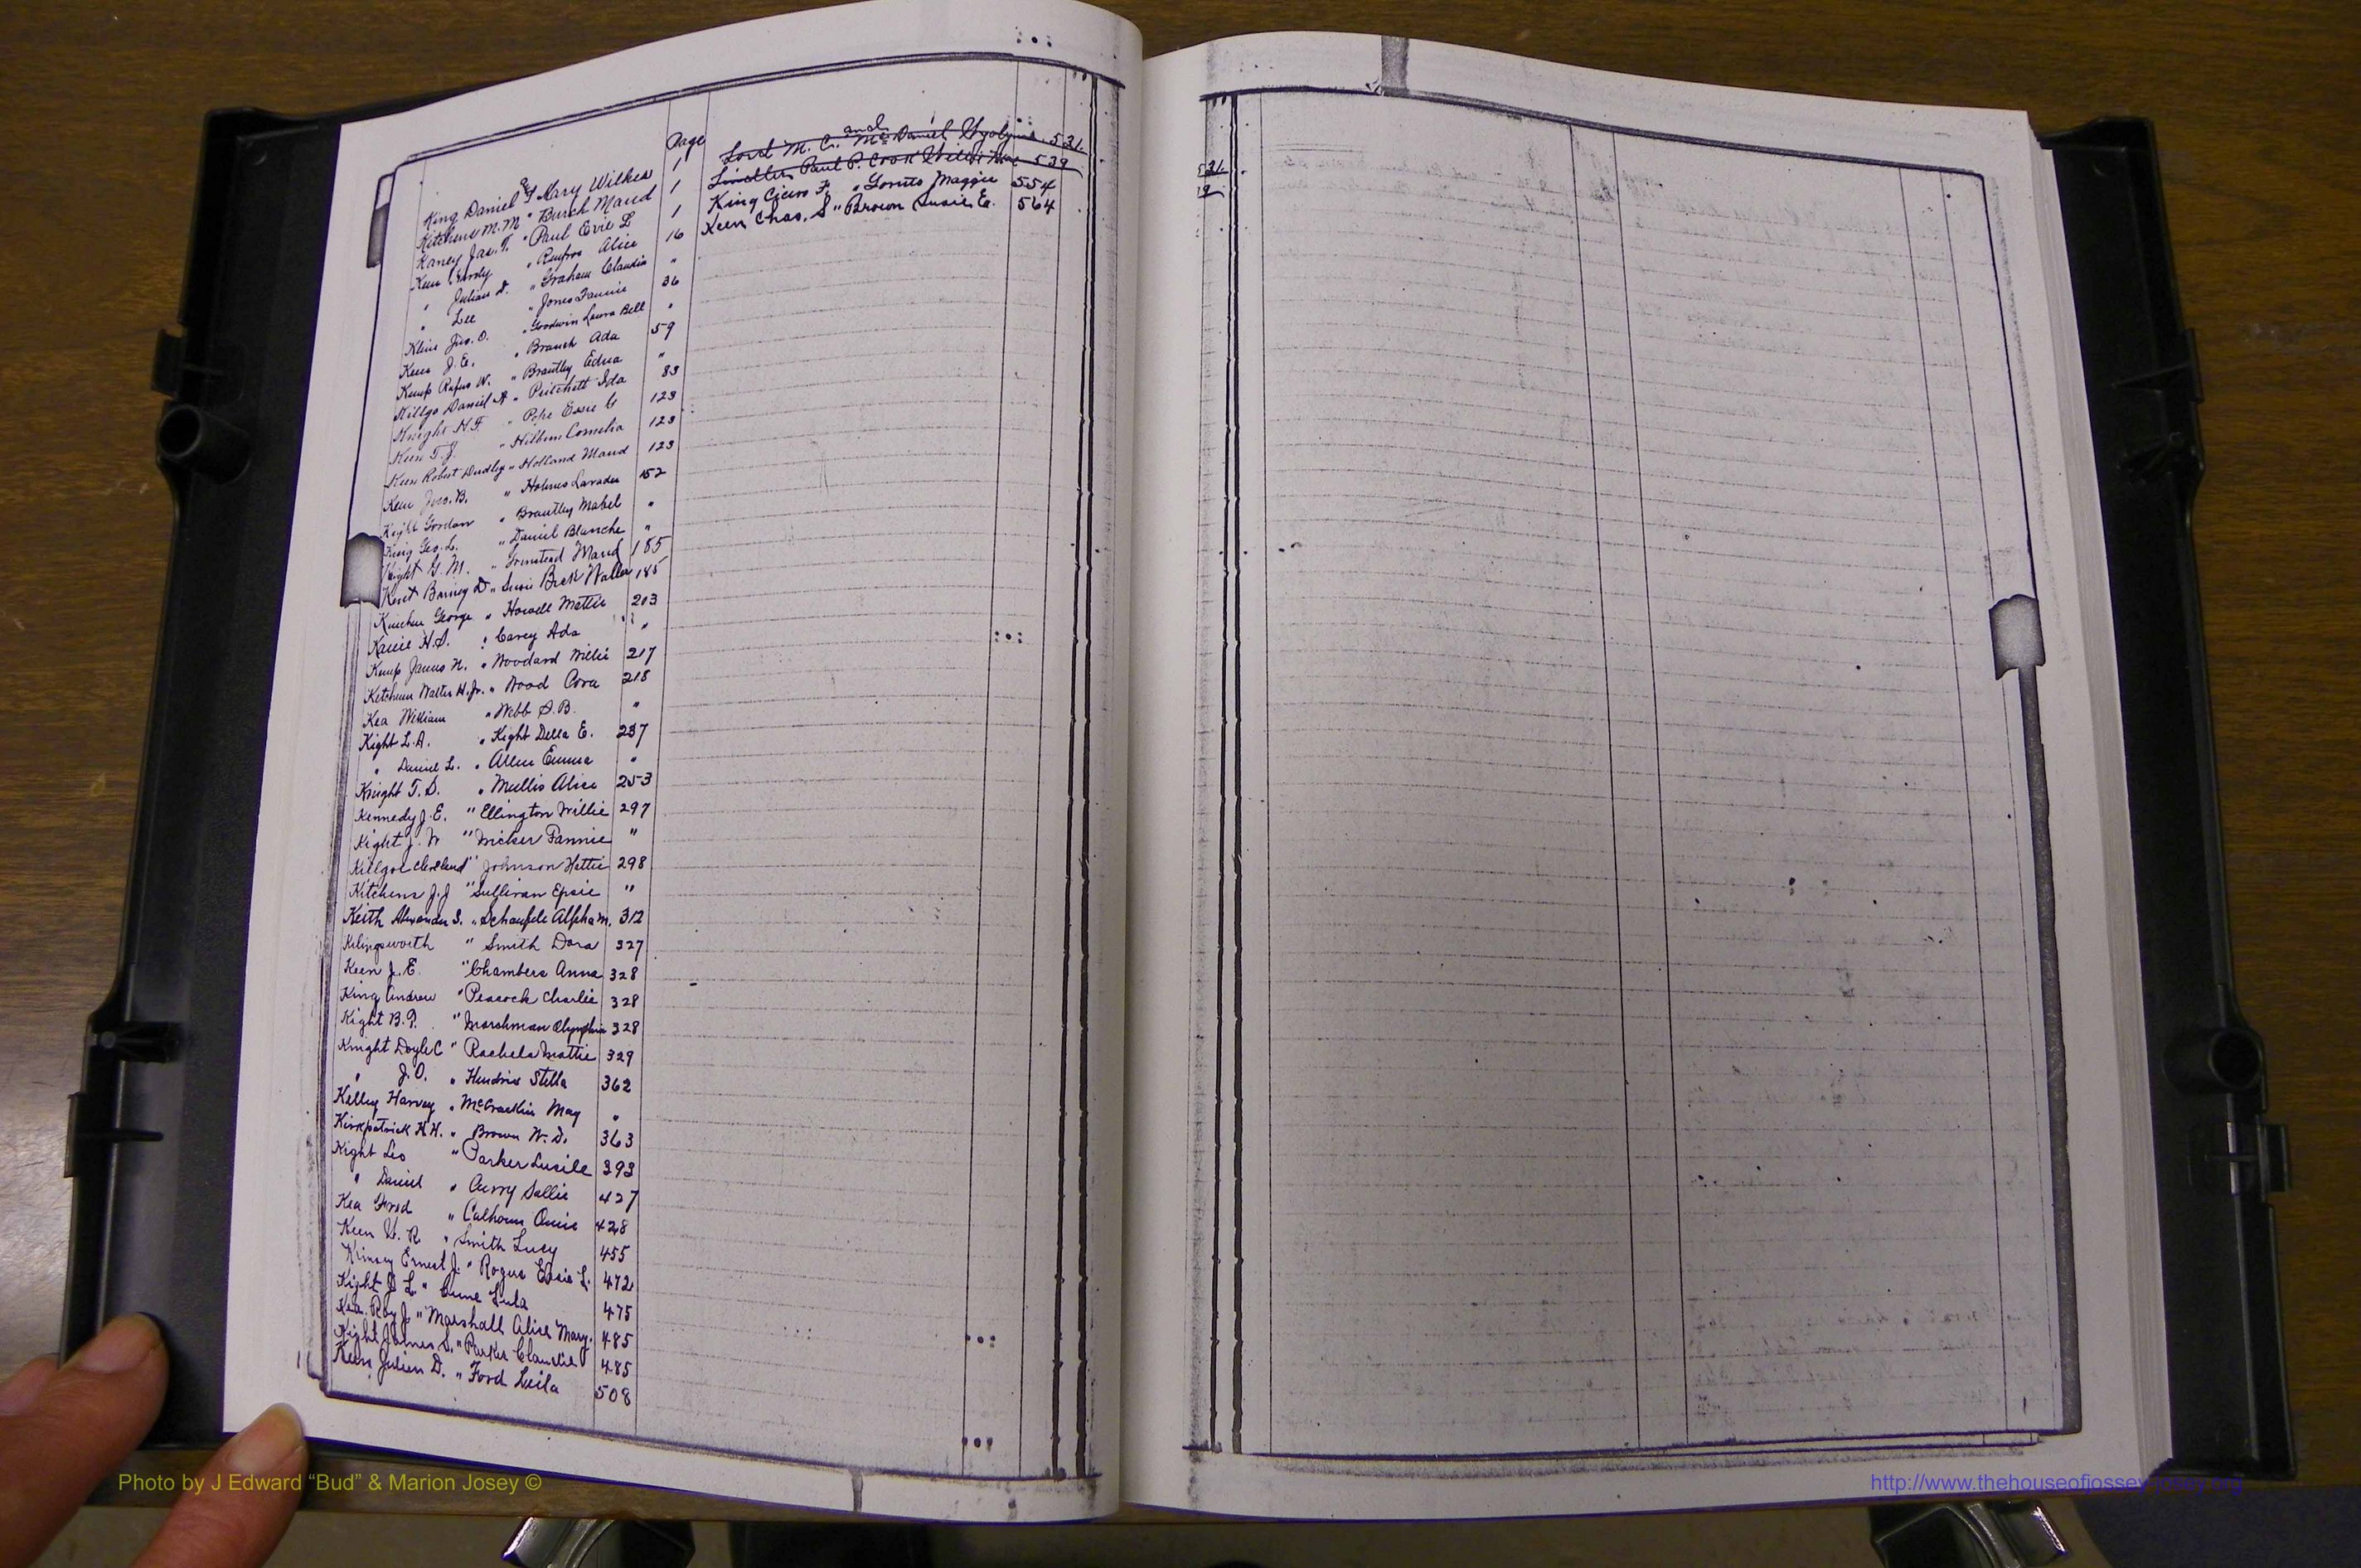 Page
King Daniel & Mary Wilkes 1
Kitchens M.M " Burch Maud 1
Kaney Jas. T. " Paul Evie L 1
Keen Hardy " Renfroe Alice 16
" Julian D. " Graham Claudia "
" Lee " Jones Fannie 36
Klein Jno. O. " Goodwin Laura Bell "
Keen J. E. " Branch Ada 59
Kemp Rufus W. " Brantley Edna "
Killgo Daniel A " Pritchett Ida 83
Knight H.F. " Pope Essie G 123
Keen T. J. " Hilbun Cornelia 123
Keen Robert Dudley " Holland Maud 123
Keen Jno. B. " Holmes Lavada 152
Kight Gordon " Brantley Mabel "
King Geo. L. " Daniel Blanche "
Kight G. M. " Maud 185
Barney D " Susie Waller 185
George " Howell Mattie 203
H.S. " Carey Ada "
Kemp James N. " Woodard Willie 217
Ketchum Walter H. Jr. " Wood Cora 218
Kea William " Webb S.B. "
Kight L.A. " Kight Della E. 237
" Daniel L. " Allen Emma "
Knight T. D. " Mullis Alice 253
Kennedy J. E. " Ellington Willie 297
Kight J. W " Fannie "
Killgo Cleveland " Johnson Hattie 298
Kitchens J.J " Sullivan Epsie "
Keith Alexander S. " Schaufele Alpha M. 312
Kilingsworth " Smith Dora 327
Keen J. E. " Chambers Anna 328
King Andrew " Peacock Charlie 328
Kight B. P. " Marchman Olymphia 328
Knight Doyle C " Rachels Mattie 329
" J. O. " Hendrix Stella 362
Kelley Harvey " McCrackin May "
Kirkpatrick H.H. " Brown W. D. 363
Kight Leo " Parker Lucile 393
" Daniel " Curry Sallie 427
Kea Fred " Calhoun Ouie 428
Keen W. R " Smith Lucy 455
Ernest J. " Elsie L. 472
Kight J. L. " Lula 475
Kea Roy J. " Marshall Alice Mary. 485
Kight James S. " Parker Claudie 485
Keen Julian D. " Ford Leila 508
and
Lord M. C. McDaniel 521
Paul P. Cook Willie Mae 539
King Cicero F. " Maggie 554
Keen Chas. S " Brown Susie E. 564
521
9
Photo by J Edward “Bud” & Marion Josey ©
http://www.thehouseofjossey-josey.org